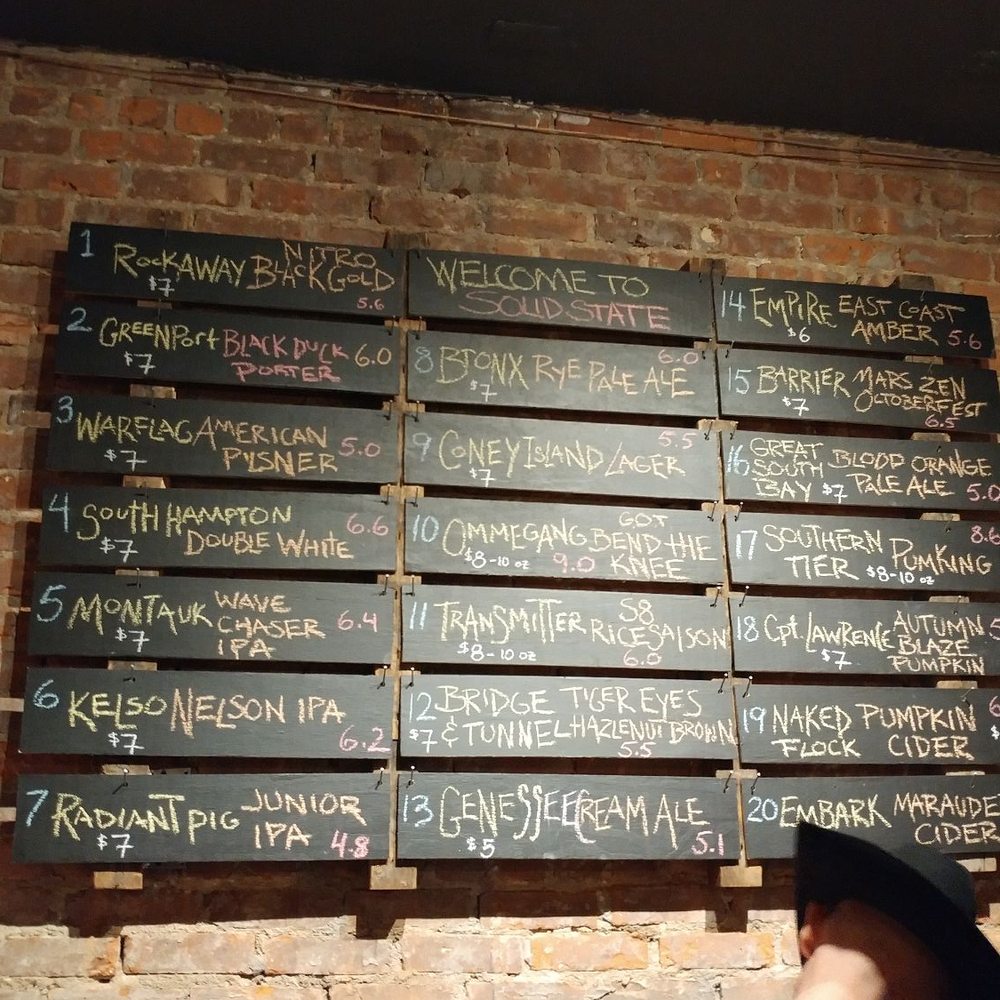 1 ROCKAWAY NITRO
BLACK GOLD
$7 5.6
2 GREENPORT BLACK DUCK 6.0
$7 PORTER
3 WARFLAG AMERICAN 5.0
$7 PILSNER
4 SOUTH HAMPTON 6.6
$7 DOUBLE WHITE
5 MONTAUK WAVE
CHASER 6.4
$7 IPA
6 KELSO NELSON IPA
$7 6.2
7 RADIANT PIG JUNIOR
$7 IPA 4.8
WELCOME TO
SOLID STATE
8 BRONX RYE PALE ALE 6.0
$7
9 CONEY ISLAND LAGER 5.5
$7
10 OMMEGANG GOT
BEND THE
$8-10 oz 9.0 KNEE
11 TRANSMITTER S8
RICE SAISON
$8-10 oz 6.0
12 BRIDGE TIGER EYES
$7 & TUNNEL HAZLENUT BROWN
5.5
13 GENESSEE CREAM ALE
$5 5.1
14 EMPIRE EAST COAST
$6 AMBER 5.6
15 BARRIER MARS ZEN
$7 OCTOBERFEST
6.5
16 GREAT
SOUTH BLOOD ORANGE
BAY $7 PALE ALE 5.0
17 SOUTHERN 8.6
TIER PUMKING
$8-10 oz
18 Cpt. LAWRENCE AUTUMN 5
BLAZE
$7 PUMPKIN
19 NAKED PUMPKIN 6
FLOCK CIDER $
20 EMBARK MARAUDE
CIDER